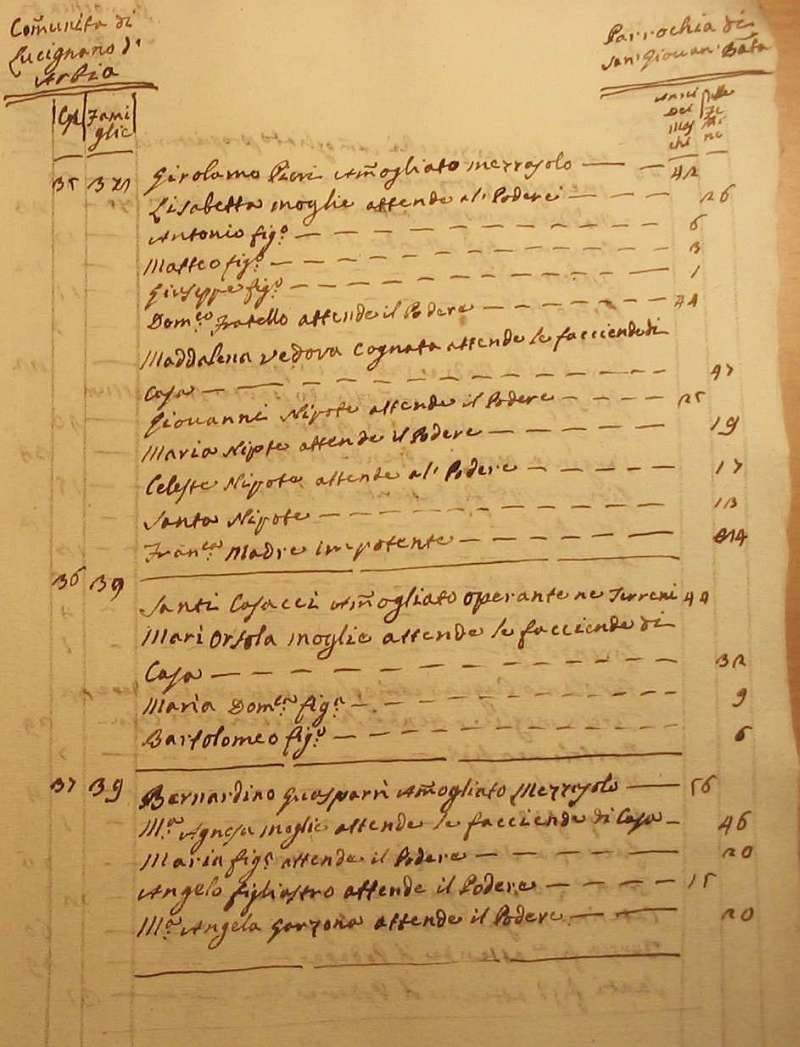 Comunita di
Lucignano d'
Arbia
Parrochia di
San Giovan Bata
Cse
Fami
glie
Anni
Dei
Mas
chi
Delle
Fe
mi
ne
35 Girolamo Pieri Amogliato mezzaiolo — 42
Lisabetta moglie attende al Podere — 26
Antonio figo — 6
Matteo figo — 3
Giuseppe figo — 1
Domco Fratello attende il Podere — 44
Maddalena Vedova Cognata attende le facciende di
Casa — 47
Giovanni Nipote attende il Podere — 25
Maria Nipte attende il Podere — 19
Celeste Nipote attende al Podere — 17
Santa Nipote — 13
Franca Madre impotente — 74
36 39 Santi Casacci Amogliato operante ne Terreni 44
Mari Orsola moglie attende le facciende di
Casa — 32
Maria Domca figa — 9
Bartolomeo figo — 6
37 39 Bernardino Guasparri Amogliato Mezzaiolo — 56
Ma Agnesa moglie attende le facciende di Casa — 46
Maria figa attende il Podere — 20
Angelo figliastro attende il Podere — 15
Ma Angela Garzona attende il Podere — 20